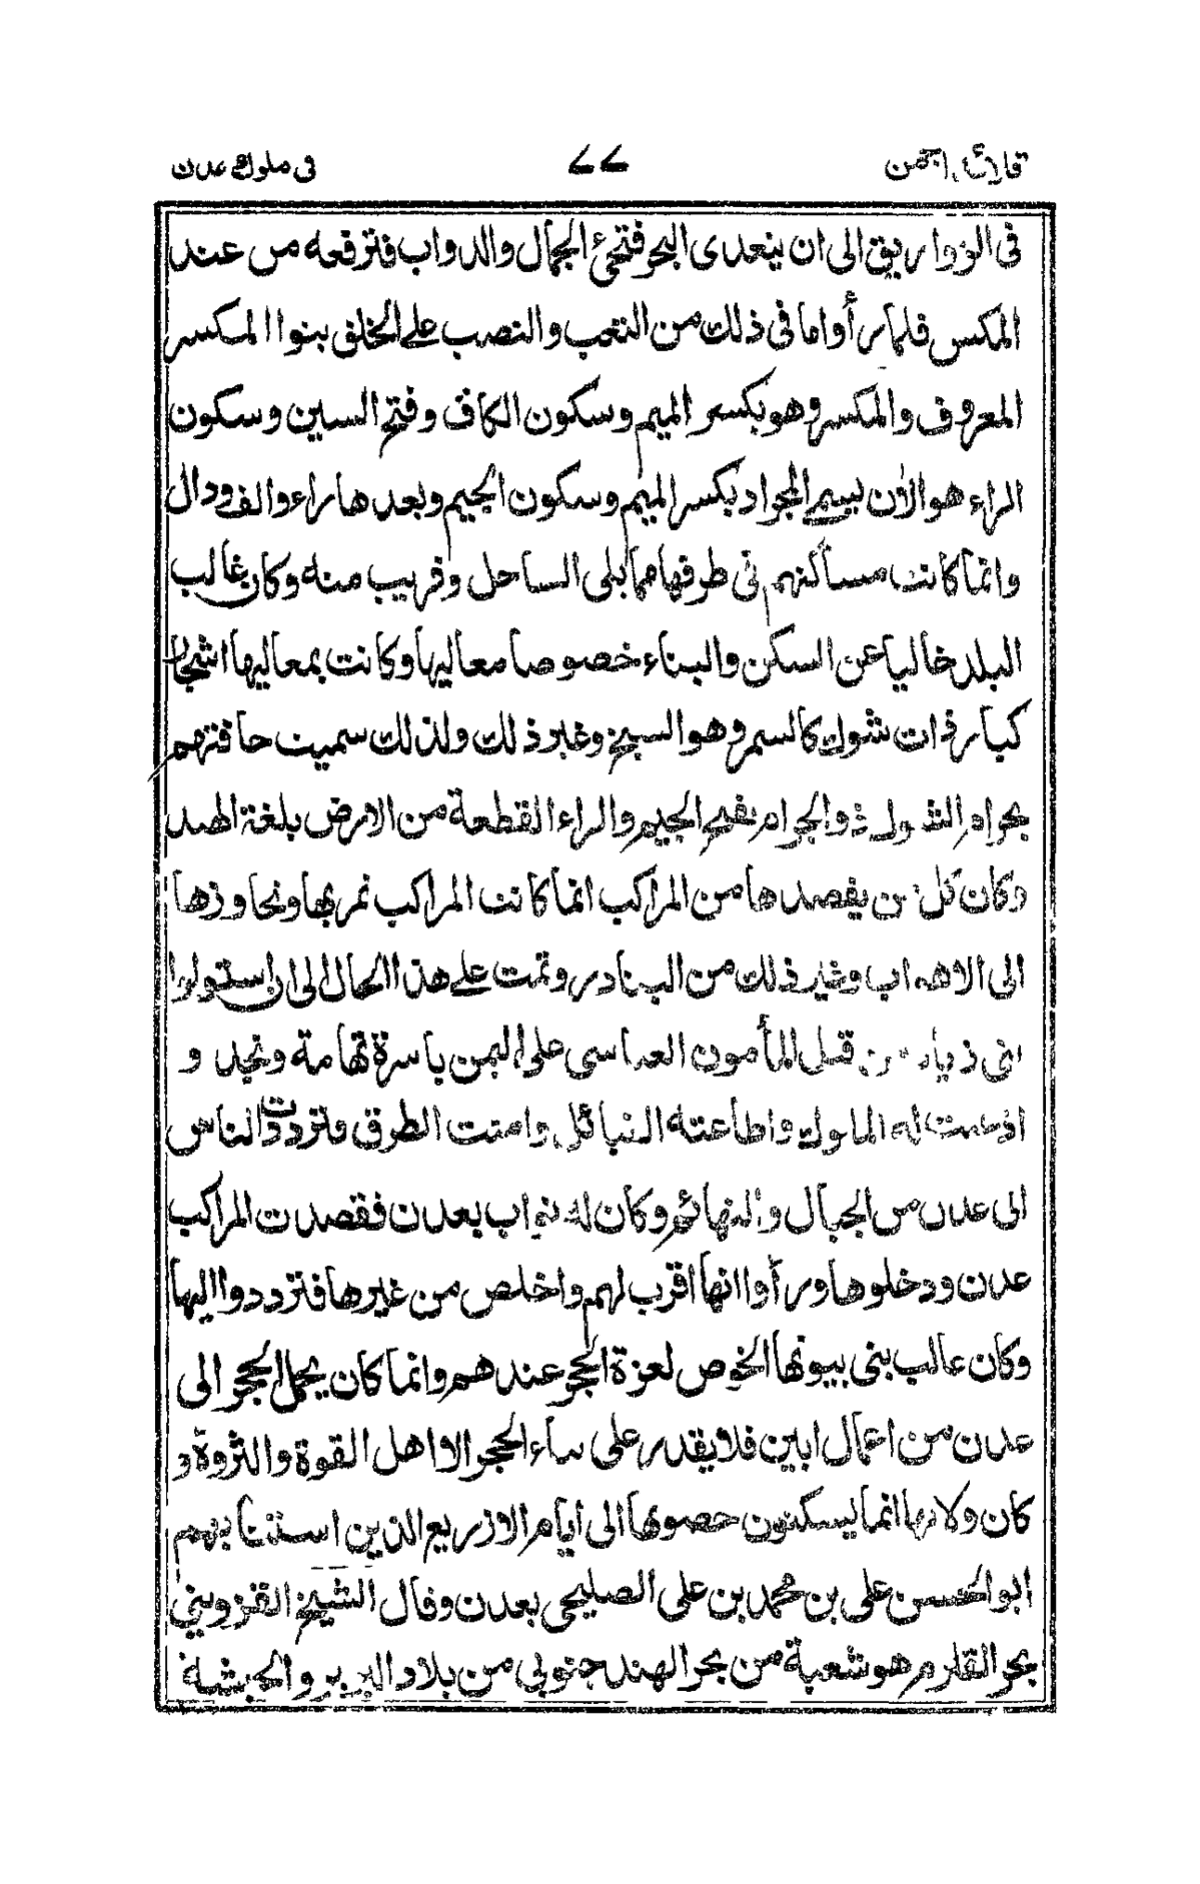 قلائد الجمن ٧٧ فى ملوك عدن
فى الزواريق الى ان ينعدى البحر فتجئ الجمال والدواب فترفعه من عند
المكس فلما رأوا ما فى ذلك من التعب والنصب على الخلق بنوا المكسر
المعروف والمكسر وهو بكسر الميم وسكون الكاف وفتح السين وسكون
الراء هو الأن يسمى المجراد بكسر الميم وسكون الجيم وبعدها راء والف ودال
وانما كانت مساكنهم فى طرفها مما يلى الساحل وقريب منه وكان غالب
البلد خاليا عن السكن والبناء خصوصا معاليها وكانت بمعاليها اشجار
كبار ذات شوك كالسمر وهو السيخ وغير ذلك ولذلك سميت حافتهم
بجرام الشوك والجرام بفتح الجيم والراء القطعة من الارض بلغة الهند
وكان كل من يقصدها من المراكب انما كانت المراكب تمر بها ونجاوزها
الى الاهواب وغير ذلك من البنادر وتمت على هذا الحال الى ان استولوا
بنى زياد من قبل المأمون العباسى على اليمن باسرة تهامة ونجد و
اذعنت له الملوك واطاعته القبائل وامنت الطرق فترددت الناس
الى عدن من الجبال والتهائم وكان له نواب بعدن فقصدت المراكب
عدن ودخلوها ورأوا انها اقرب لهم واخلص من غيرها فترددوا اليها
وكان غالب بنى بيوتها الخوص لعزة الحجر عندهم وانما كان يحمل الحجر الى
عدن من اعمال ابين فلا يقدر على بناء الحجر الا اهل القوة والثروة و
كان ولاتها انما يسكنون حصونها الى ايام الا زريع الذين استنابهم
ابو الحسن على بن محمد بن على الصليحى بعدن وقال الشيخ القزوينى
بحر القلزم هو شعبة من بحر الهند جنوبى من بلاد البربر والحبشة